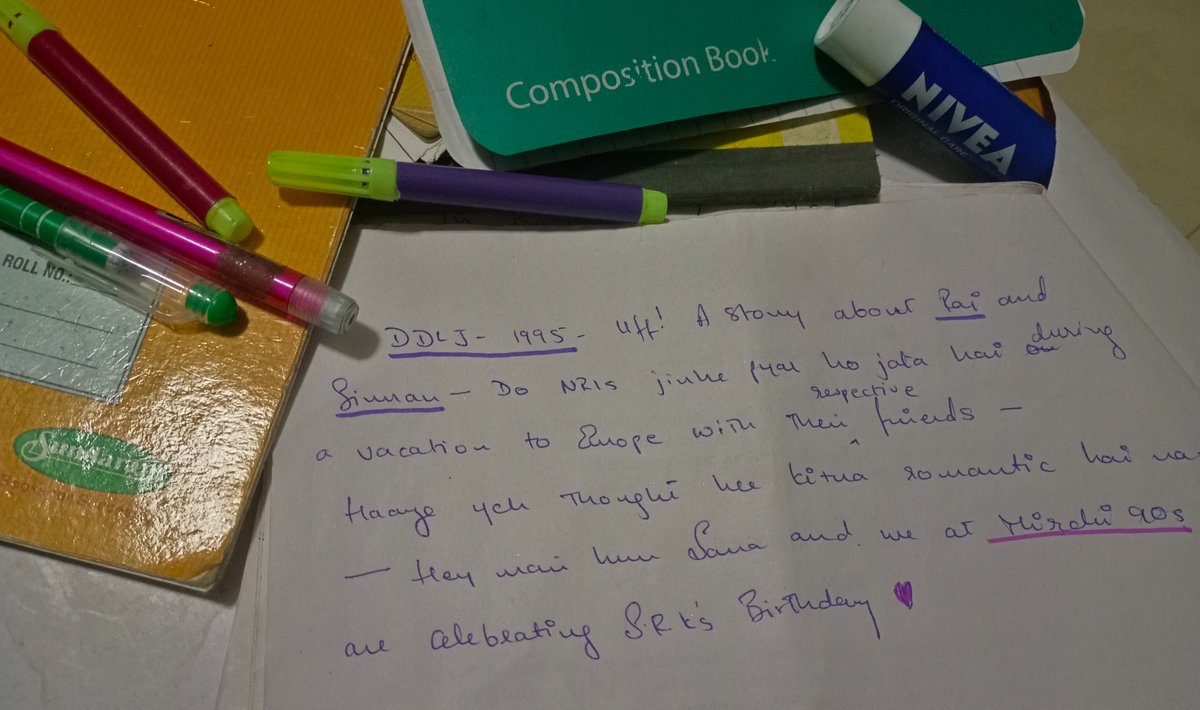 Composition Book
NIVEA
ORIGINAL CARE
ROLL NO.:
Sundaram
DDLJ - 1995 - Uff! A story about Raj and
Simran - Do NRIs jinhe pyar ho jata hai during
a vacation to Europe with their respective friends -
Haaye yeh thought hee kitna romantic hai na
- Hey main hun Sana and we at Mirchi 90s
are celebrating S.R.K's Birthday